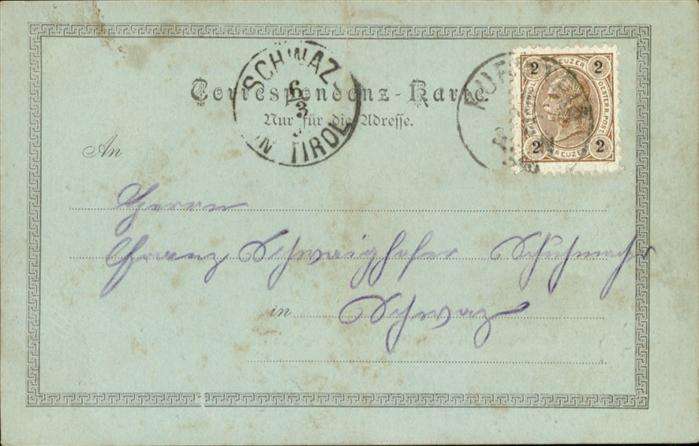 SCHWAZ
6
3
IN TIROL
KUF
2 KREUZER 2
2 KREUZER 2
Correspondenz-Karte
Nur für die Adresse.
An
Herrn
Franz Schwaighofer Schuhm
in Schwaz